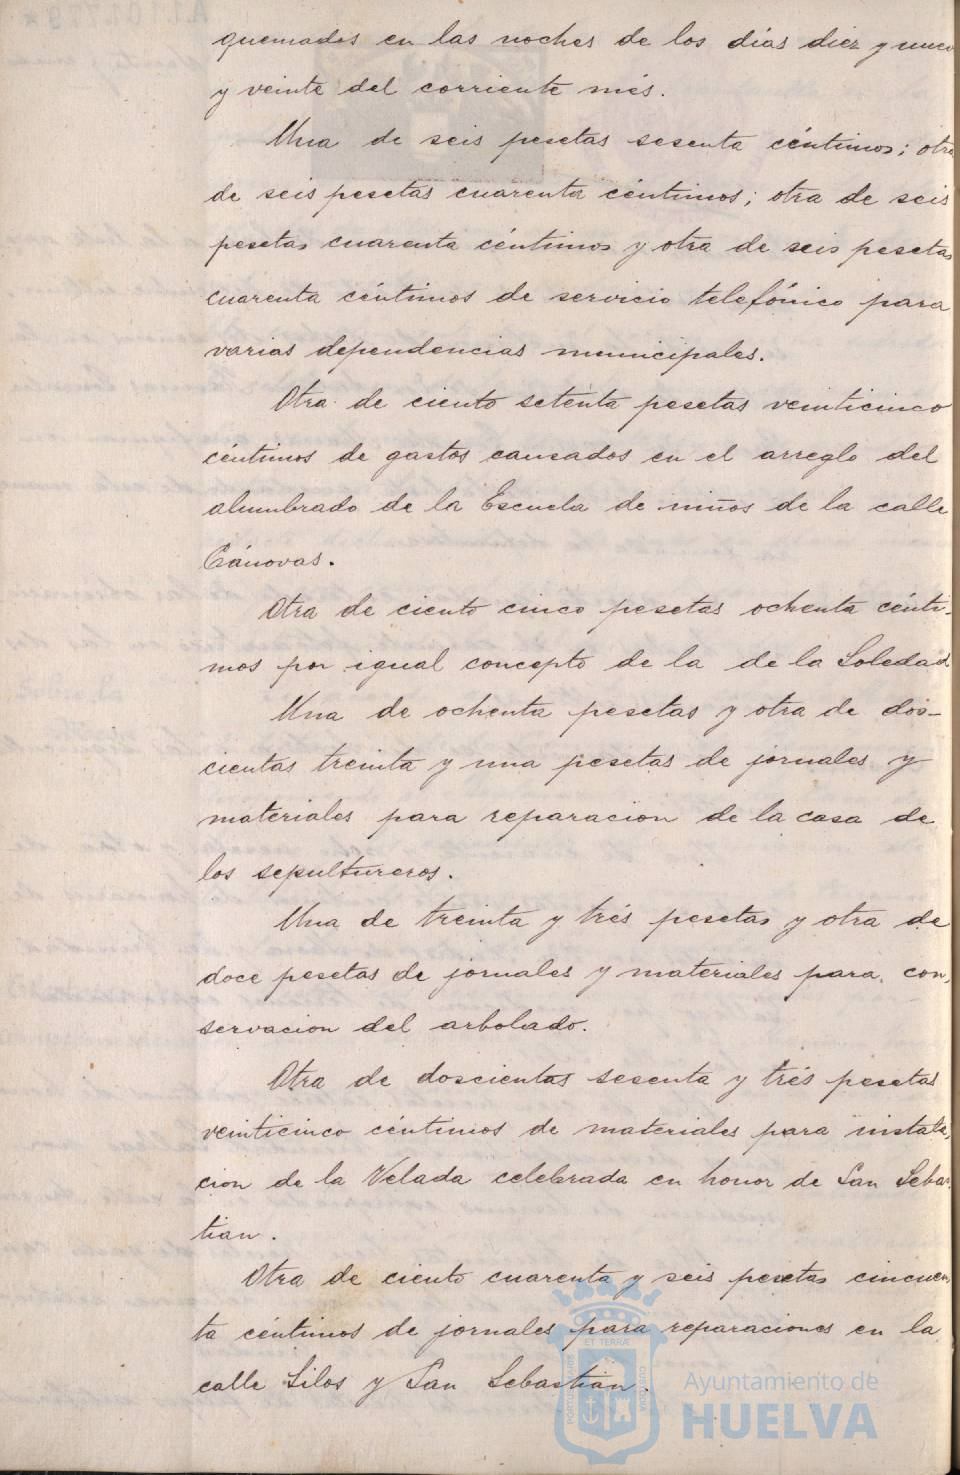 quemados en las noches de los días diez y nueve
y veinte del corriente més.
Una de seis pesetas sesenta céntimos; otra
de seis pesetas cuarenta céntimos; otra de seis
pesetas cuarenta céntimos y otra de seis pesetas
cuarenta céntimos de servicio telefónico para
varias dependencias municipales.
Otra de ciento setenta pesetas veinticinco
céntimos de gastos causados en el arreglo del
alumbrado de la Escuela de niños de la calle
Cánovas.
Otra de ciento cinco pesetas ochenta cénti-
mos por igual concepto de la de la Soledad
Una de ochenta pesetas y otra de dos-
cientas treinta y una pesetas de jornales y
materiales para reparacion de la casa de
los sepultureros.
Una de treinta y trés pesetas y otra de
doce pesetas de jornales y materiales para con-
servacion del arbolado.
Otra de doscientas sesenta y trés pesetas
veinticinco céntimos de materiales para instala-
cion de la Velada celebrada en honor de San Sebas-
tian.
Otra de ciento cuarenta y seis pesetas cincuen-
ta céntimos de jornales para reparaciones en la
calle Silos y San Sebastian.
ET TERRÆ
PORTUS MARIS
CUSTODIA
Ayuntamiento de
HUELVA